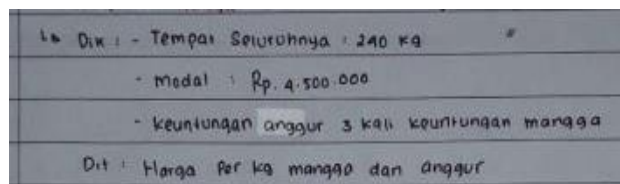 1. Dik : - Tempat Seluruhnya : 240 kg
- modal : Rp. 4.500.000
- keuntungan anggur 3 kali keuntungan mangga
Dit : Harga Per kg mangga dan anggur